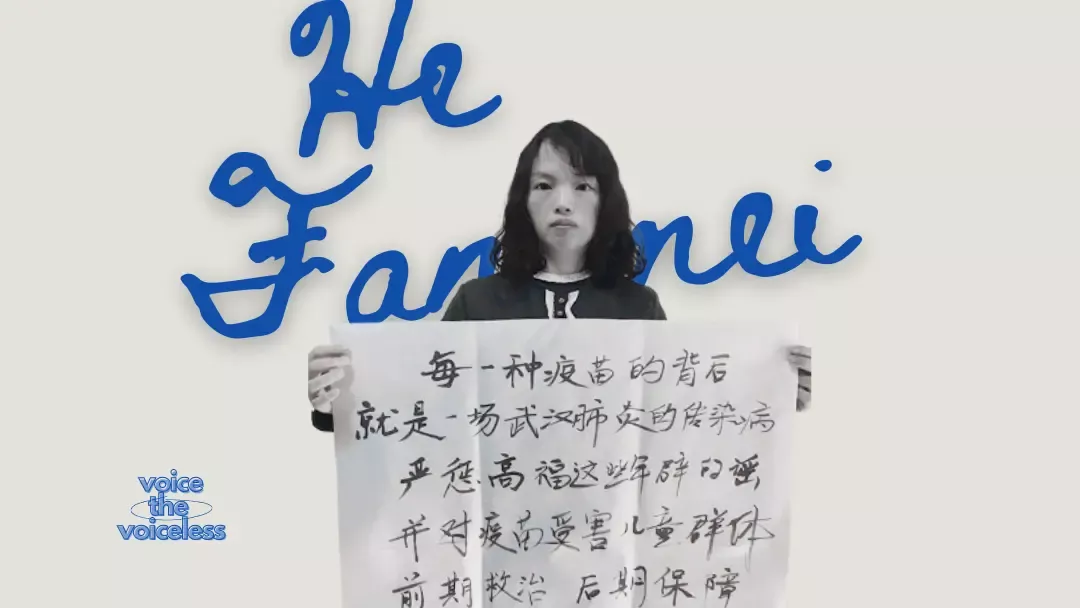 He
Fangmei
每一种疫苗的背后
就是一场武汉肺炎的传染病
严惩高福这些年辟的谣
并对疫苗受害儿童群体
前期救治 后期保障
voice
the
voiceless